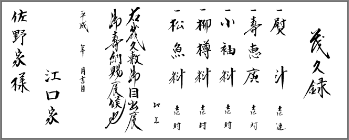 茂久録
一 熨斗 壱連
一 寿恵廣 壱対
一 小袖料 壱封
一 柳樽料 壱封
一 松魚料 壱封
以上
右茂久録幾久敷目出度
御寿納賜度候也
平成 年 月吉日
江口家
佐野家様